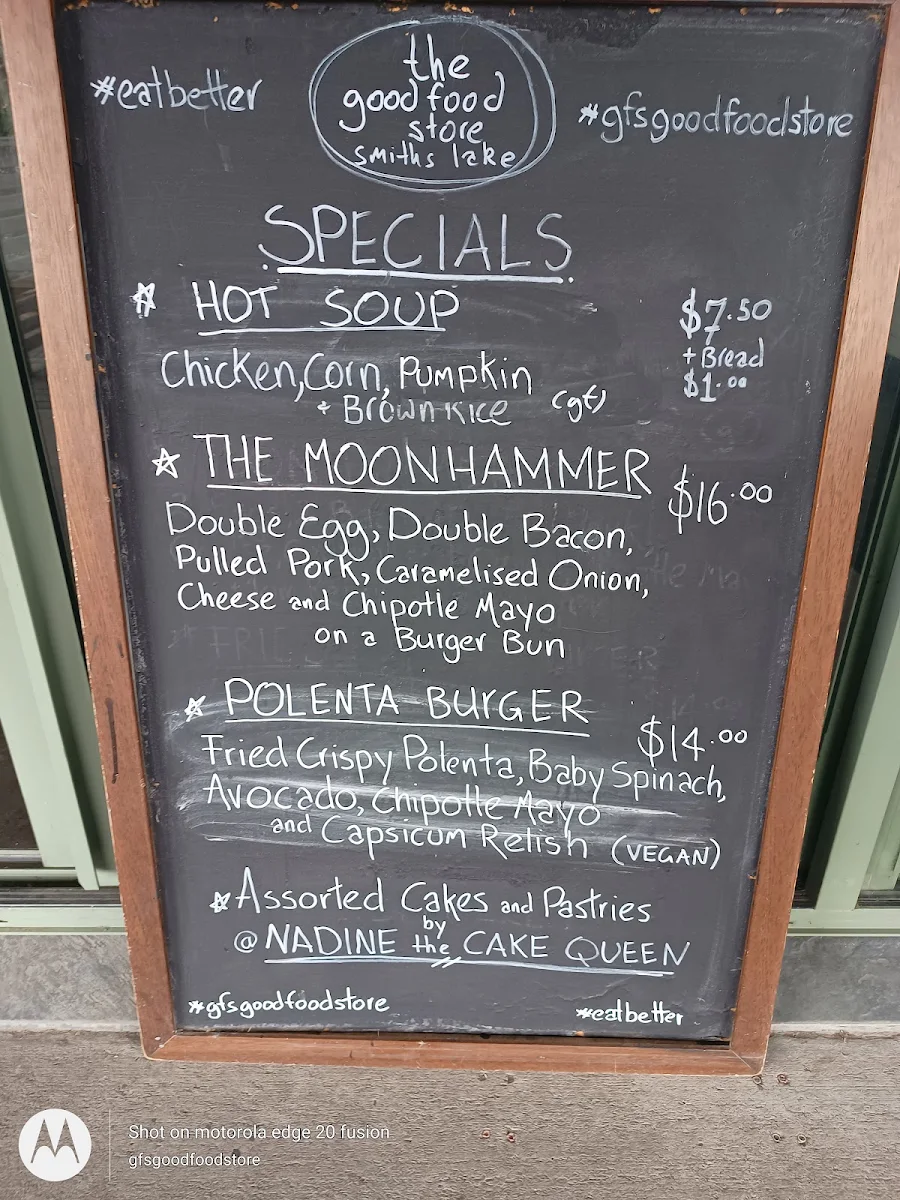 #eatbetter
the
good food
store
smiths lake
#gfsgoodfoodstore
SPECIALS
☆ HOT SOUP
$7.50
+ Bread
$1.00
Chicken, Corn, Pumpkin
+ Brown Rice (gf)
☆ THE MOONHAMMER
$16.00
Double Egg, Double Bacon,
Pulled Pork, Caramelised Onion,
Cheese and Chipotle Mayo
on a Burger Bun
☆ POLENTA BURGER
$14.00
Fried Crispy Polenta, Baby Spinach,
Avocado, Chipotle Mayo
and Capsicum Relish (VEGAN)
☆ Assorted Cakes and Pastries
by
@ NADINE the CAKE QUEEN
#gfsgoodfoodstore
#eatbetter
Shot on motorola edge 20 fusion
gfsgoodfoodstore